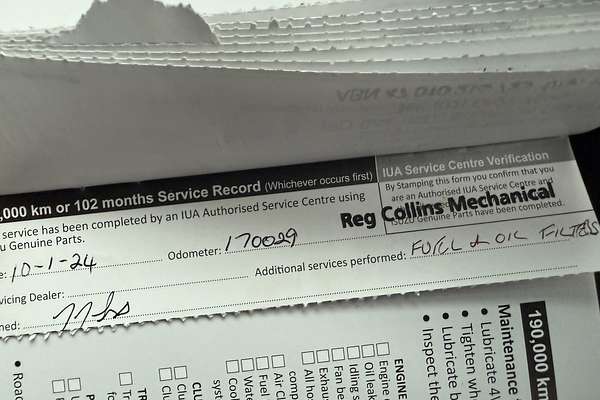 ,000 km or 102 months Service Record (Whichever occurs first)
service has been completed by an IUA Authorised Service Centre using
u Genuine Parts.
e: 10-1-24
Odometer: 170029
vicing Dealer:
Additional services performed: FUEL & OIL FILTERS
ned:
IUA Service Centre Verification
By Stamping this form you confirm that you
are an Authorised IUA Service Centre and
Reg Collins Mechanical
ISUZU Genuine Parts have been completed.
190,000 km
Maintenance
• Lubricate 4W
• Tighten wh
• Lubricate b
• Inspect the
ENGINE
Engine
Oil leak
Idling s
Fan be
Exhaus
All ho
comp
Air Cl
Fuel
Wate
Cool
syst
CLU
Clu
Clu
TR
T
• Road